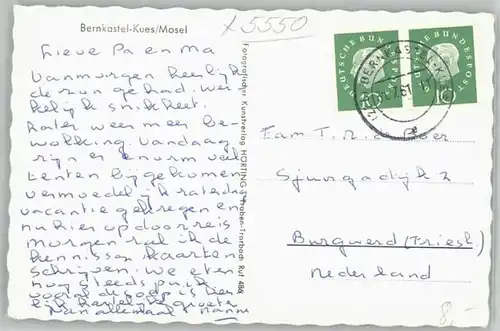 Bernkastel-Kues/Mosel
x 5550
Lieve Pa en Ma
Vanmorgen heerlijk
de zon gehad. Wer-
kelijk snikheet.
Later weer meer be-
wolking. Vandaag
zijn er enorm veel
tenten bijgekomen
vermoedelijk zaterdag
vacantie gekregen en
nu hier op doorreis
morgen zal ik de
kennissen kaarten
schrijven. We eten
nog steeds puik
vooral de soep is
En hartelijke groeten
van allemaal Hanna
Fotografischer Kunstverlag HORTING Traben-Trarbach Ruf 486
DEUTSCHE BUNDESPOST
10
DEUTSCHE BUNDESPOST
10
BERNKASTEL-KUES
Fam. T. de Boer
Sjungadijk 2
Burgwerd (Friesl.)
Nederland
8,-